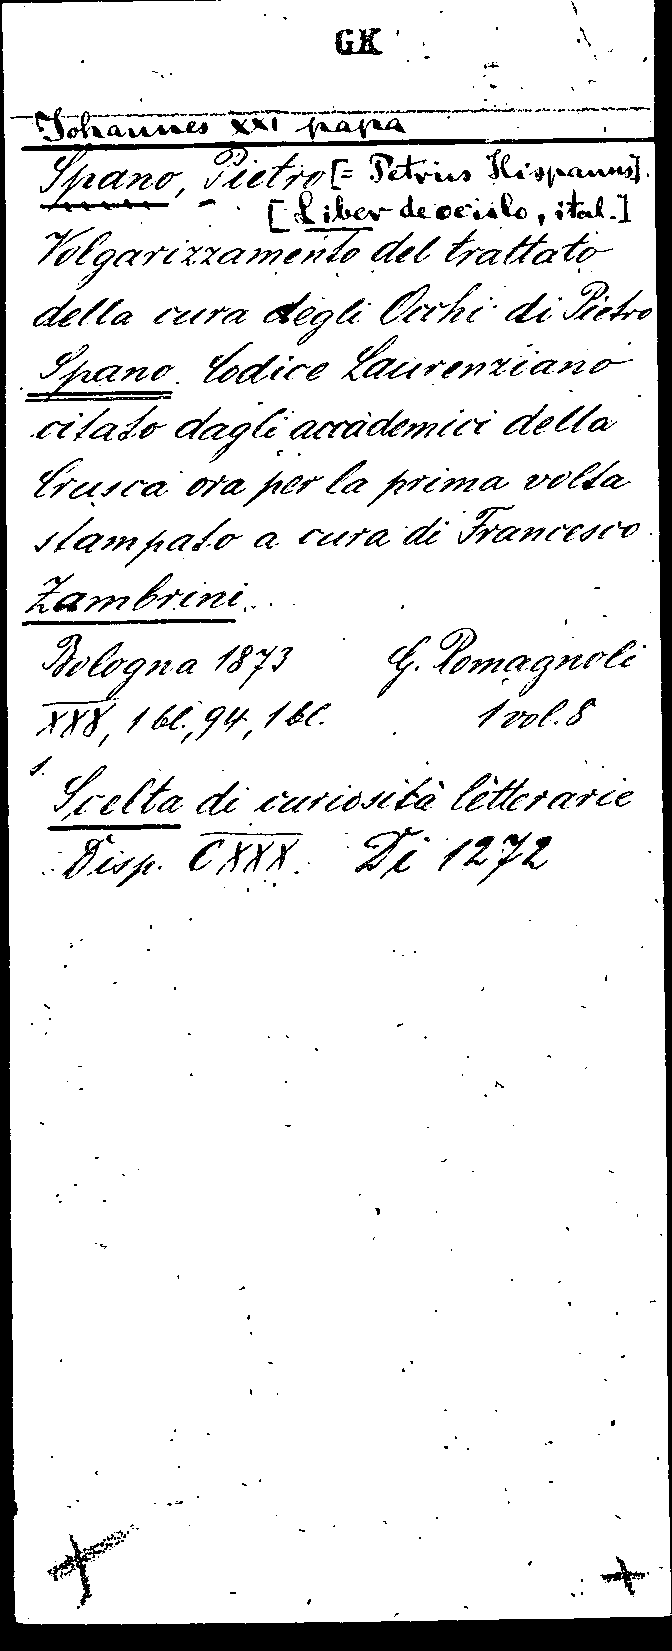 GK
Johannes XXI papa
Spano, Pietro [= Petrus Hispanus].
[Liber de oculo, ital.]
Volgarizzamento del trattato
della cura degli Occhi di Pietro
Spano. Codice Laurenziano
citato dagli accademici della
Crusca ora per la prima volta
stampato a cura di Francesco
Zambrini.
Bologna 1873 G. Romagnoli
XXX, 1 bl., 94, 1 bl. 1 vol. 8
1.
Scelta di curiosità letterarie
Disp. CXXX. Di 1272